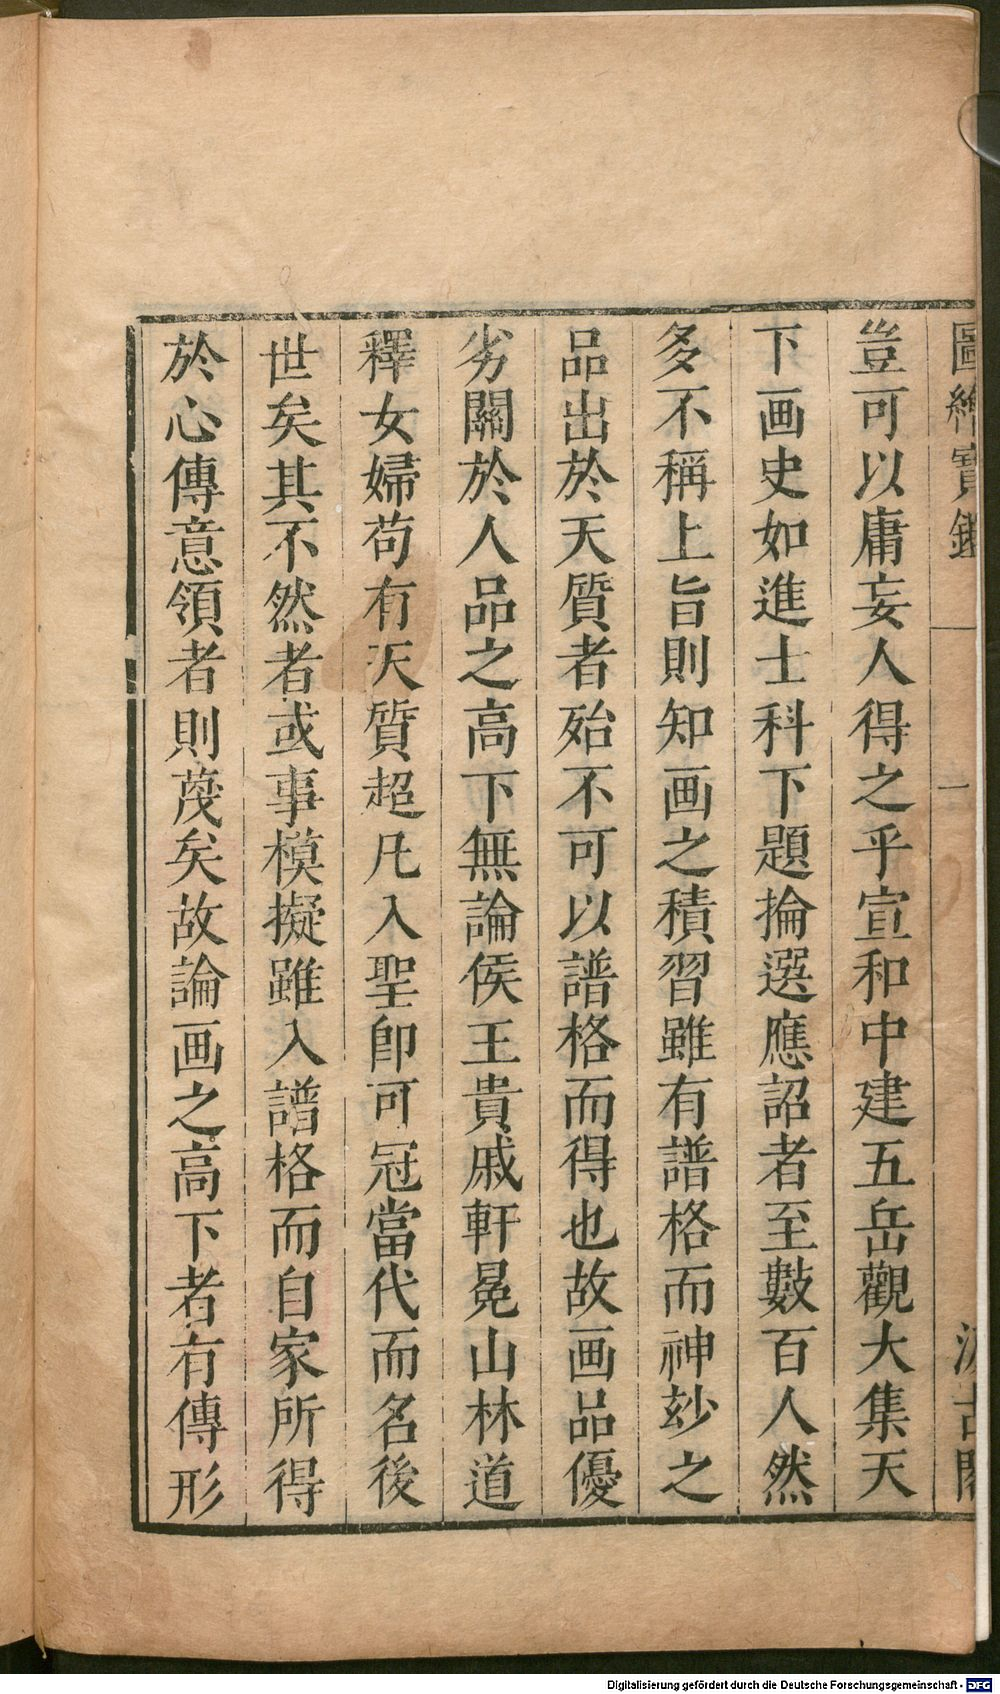 圖繪寶鑑
一
汲古閣
豈可以庸妄人得之乎宣和中建五岳觀大集天
下画史如進士科下題掄選應詔者至數百人然
多不稱上旨則知画之積習雖有譜格而神玅之
品出於天質者殆不可以譜格而得也故画品優
劣關於人品之高下無論侯王貴戚軒冕山林道
釋女婦苟有天質超凡入聖卽可冠當代而名後
世矣其不然者或事模擬雖入譜格而自家所得
於心傳意領者則蔑矣故論画之高下者有傳形
Digitalisierung gefördert durch die Deutsche Forschungsgemeinschaft - DFG